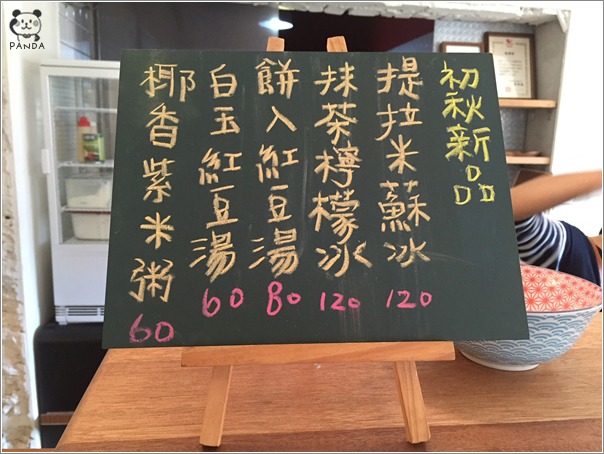 PANDA
初秋新品
提拉米蘇冰
120
抹茶檸檬冰
120
餅入紅豆湯
80
白玉紅豆湯
60
椰香紫米粥
60